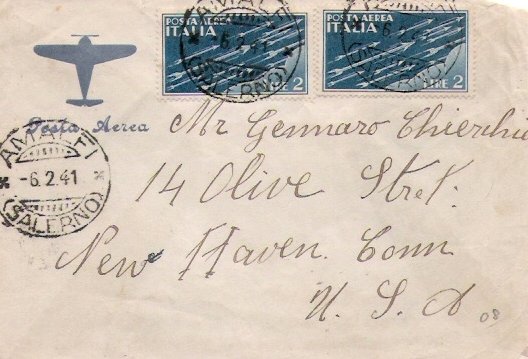 POSTA AEREA
ITALIA
LIRE 2
POSTA AEREA
ITALIA
LIRE 2
AMALFI
6.2.41
(SALERNO)
Posta Aerea
AMALFI
-6.2.41
(SALERNO)
Mr Gennaro
14 Olive Stret.
New Haven. Conn
U. S. A
08